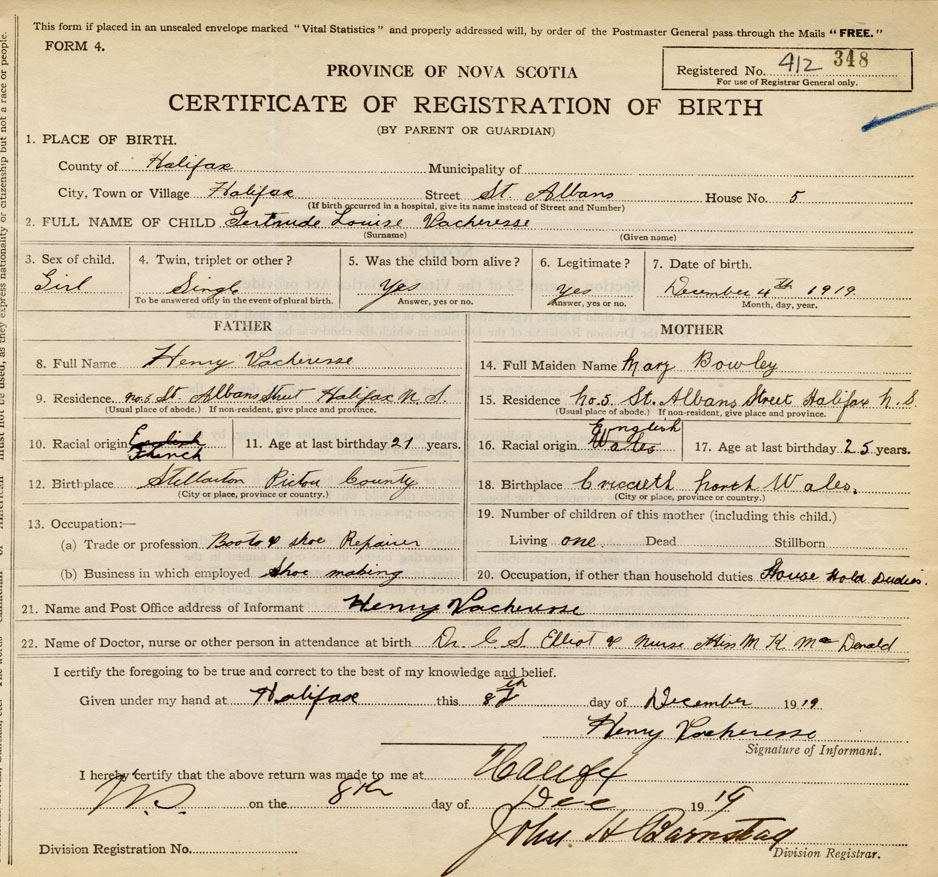 This form if placed in an unsealed envelope marked "Vital Statistics" and properly addressed will, by order of the Postmaster General pass through the Mails "FREE."
FORM 4.
Registered No. 412 348
For use of Registrar General only.
PROVINCE OF NOVA SCOTIA
CERTIFICATE OF REGISTRATION OF BIRTH
(BY PARENT OR GUARDIAN)
1. PLACE OF BIRTH.
County of Halifax Municipality of
City, Town or Village Halifax Street St. Albans House No. 5
(If birth occurred in a hospital, give its name instead of Street and Number)
2. FULL NAME OF CHILD Gertrude Louise Vacheresse
(Surname) (Given name)
3. Sex of child. 4. Twin, triplet or other? 5. Was the child born alive? 6. Legitimate? 7. Date of birth.
Girl Single Yes Yes December 4th 1919
To be answered only in the event of plural birth. Answer, yes or no. Answer, yes or no. Month, day, year.
FATHER
8. Full Name Henry Vacheresse
9. Residence no. 5 St. Albans Street Halifax N. S.
(Usual place of abode.) If non-resident, give place and province.
10. Racial origin English French 11. Age at last birthday 27 years.
12. Birthplace Stellarton Pictou County
(City or place, province or country.)
13. Occupation:—
(a) Trade or profession Boots & shoe Repairer
(b) Business in which employed Shoe making
MOTHER
14. Full Maiden Name Mary Bowley
15. Residence no. 5. St. Albans Street Halifax N. S.
(Usual place of abode.) If non-resident, give place and province.
16. Racial origin English Wales 17. Age at last birthday 25 years.
18. Birthplace Criccieth North Wales.
(City or place, province or country.)
19. Number of children of this mother (including this child.)
Living one Dead Stillborn
20. Occupation, if other than household duties House Hold Duties.
21. Name and Post Office address of Informant Henry Vacheresse
22. Name of Doctor, nurse or other person in attendance at birth Dr. C S. Elliot & Nurse Miss M K McDonald
I certify the foregoing to be true and correct to the best of my knowledge and belief.
Given under my hand at Halifax this 8th day of December 1919
Henry Vacheresse
Signature of Informant.
I hereby certify that the above return was made to me at Halifax
on the 8th day of Dec 1919
John H Barnstead
Division Registration No. Division Registrar.